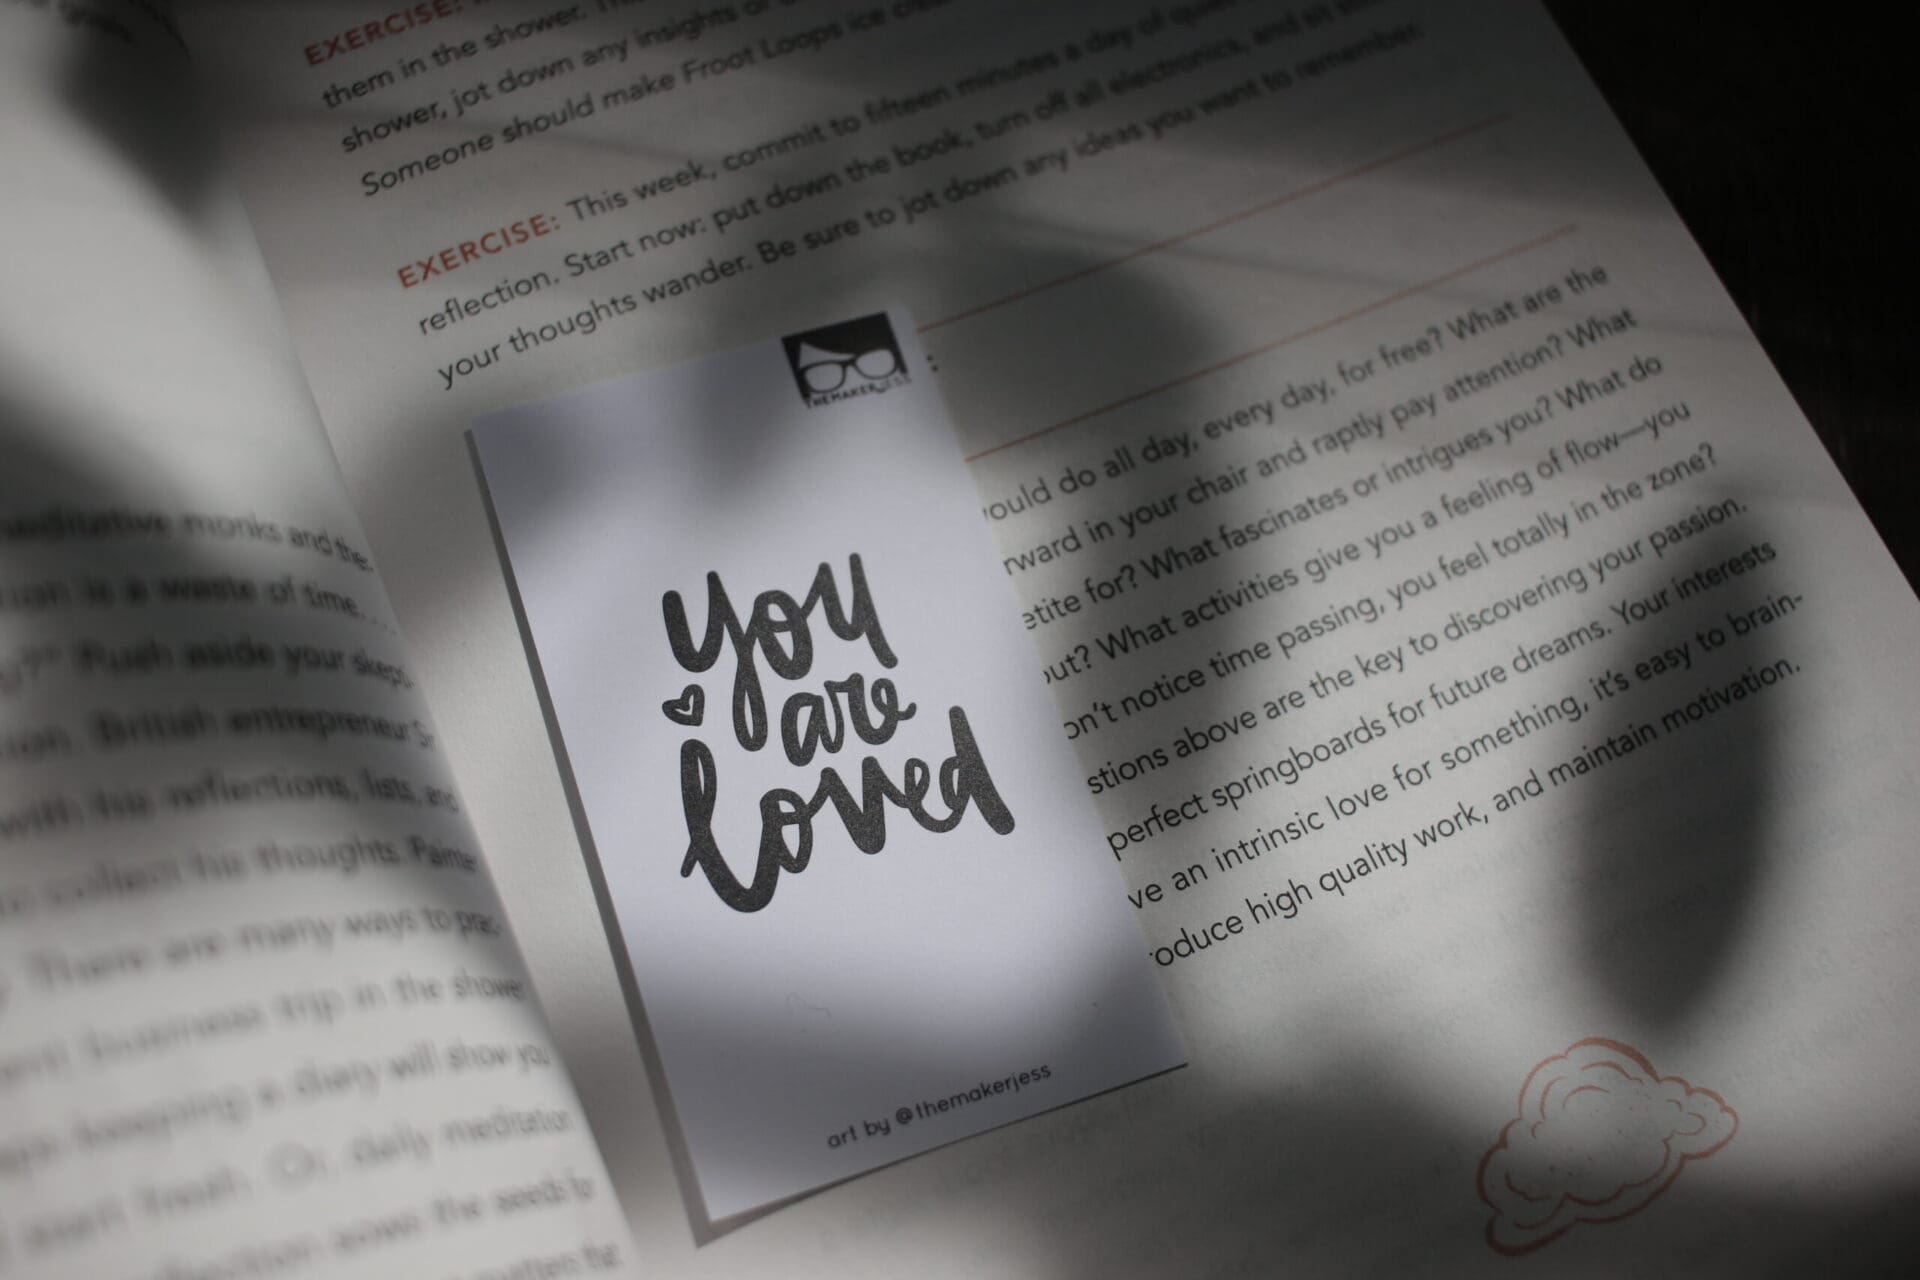 meditative monks and the
is a waste of time...
Push aside your skept-
British entrepreneur
with his reflections, lists, and
collect his thoughts. Painter
There are many ways to prac-
business trip in the shower
keeping a diary will show you
start fresh. Or, daily meditation
sows the seeds for
EXERCISE:
them in the shower.
shower, jot down any insights or
Someone should make Froot Loops ice
EXERCISE: This week, commit to fifteen minutes a day of quiet
reflection. Start now: put down the book, turn off all electronics, and
your thoughts wander. Be sure to jot down any ideas you want to remember.
:
ould do all day, every day, for free? What are the
rward in your chair and raptly pay attention? What
etite for? What fascinates or intrigues you? What do
out? What activities give you a feeling of flow—you
on't notice time passing, you feel totally in the zone?
stions above are the key to discovering your passion.
perfect springboards for future dreams. Your interests
ve an intrinsic love for something, it's easy to brain-
oduce high quality work, and maintain motivation.
THEMAKERJESS
you
are
loved
art by @themakerjess